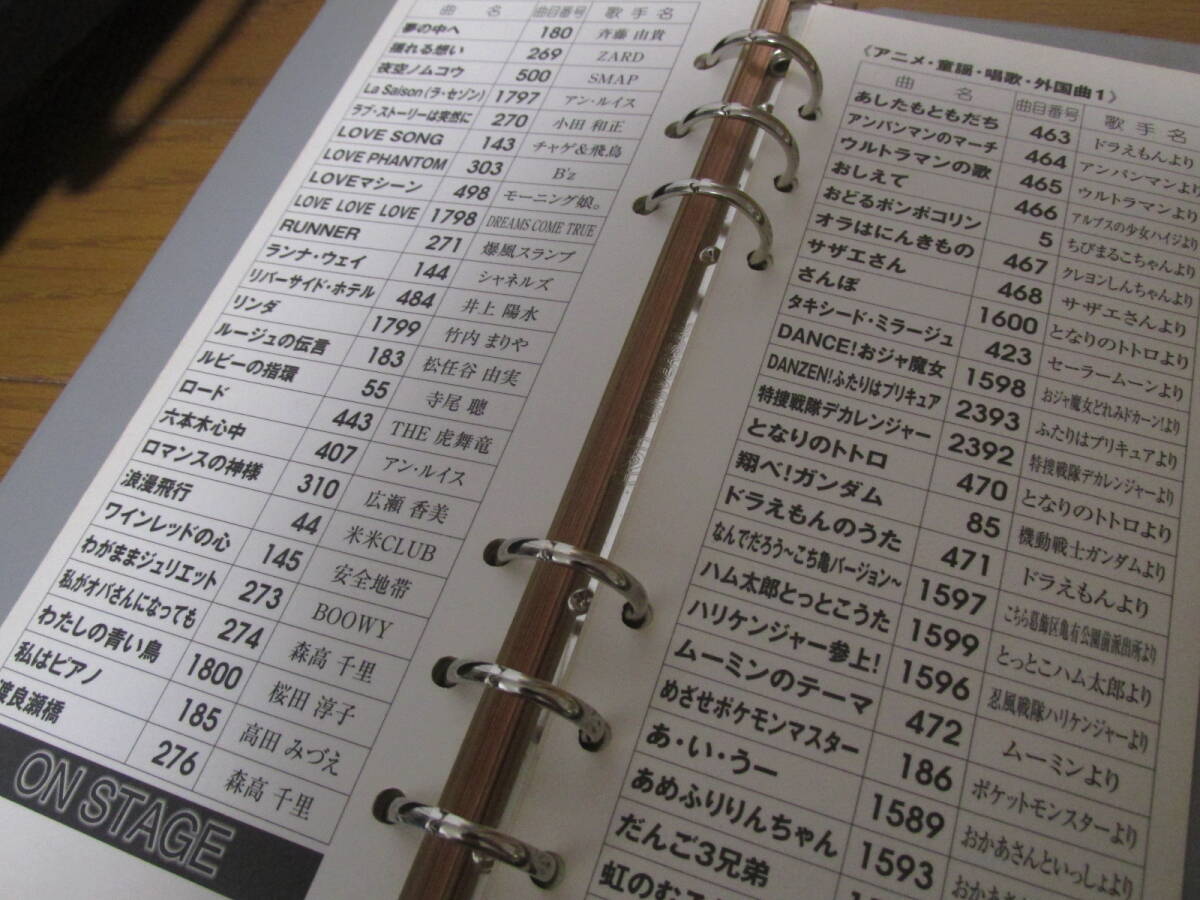 曲 名 曲目番号 歌 手 名
夢の中へ 180 斉藤 由貴
揺れる想い 269 ZARD
夜空ノムコウ 500 SMAP
La Saison (ラ・セゾン) 1797 アン・ルイス
ラブ・ストーリーは突然に 270 小田 和正
LOVE SONG 143 チャゲ&飛鳥
LOVE PHANTOM 303 B'z
LOVEマシーン 498 モーニング娘。
LOVE LOVE LOVE 1798 DREAMS COME TRUE
RUNNER 271 爆風スランプ
ランナ・ウェイ 144 シャネルズ
リバーサイド・ホテル 484 井上 陽水
リンダ 1799 竹内 まりや
ルージュの伝言 183 松任谷 由実
ルビーの指環 55 寺尾 聰
ロード 443 THE 虎舞竜
六本木心中 407 アン・ルイス
ロマンスの神様 310 広瀬 香美
浪漫飛行 44 米米CLUB
ワインレッドの心 145 安全地帯
わがままジュリエット 273 BOOWY
私がオバさんになっても 274 森高 千里
わたしの青い鳥 1800 桜田 淳子
私はピアノ 185 高田 みづえ
渡良瀬橋 276 森高 千里
ON STAGE
《アニメ・童謡・唱歌・外国曲1》
曲 名 曲目番号 歌 手 名
あしたもともだち 463 ドラえもんより
アンパンマンのマーチ 464 アンパンマンより
ウルトラマンの歌 465 ウルトラマンより
おしえて 466 アルプスの少女ハイジより
おどるポンポコリン 5 ちびまるこちゃんより
オラはにんきもの 467 クレヨンしんちゃんより
サザエさん 468 サザエさんより
さんぽ 1600 となりのトトロより
タキシード・ミラージュ 423 セーラームーンより
DANCE!おジャ魔女 1598 おジャ魔女どれみドカーン!より
DANZEN!ふたりはプリキュア 2393 ふたりはプリキュアより
特捜戦隊デカレンジャー 2392 特捜戦隊デカレンジャーより
となりのトトロ 470 となりのトトロより
翔べ!ガンダム 85 機動戦士ガンダムより
ドラえもんのうた 471 ドラえもんより
なんでだろう~こち亀バージョン~ 1597 こちら葛飾区亀有公園前派出所より
ハム太郎とっとこうた 1599 とっとこハム太郎より
ハリケンジャー参上! 1596 忍風戦隊ハリケンジャーより
ムーミンのテーマ 472 ムーミンより
めざせポケモンマスター 186 ポケットモンスターより
あ・い・うー 1589 おかあさんといっしょより
あめふりりんちゃん 1593 おかあさん
だんご3兄弟
虹のむ